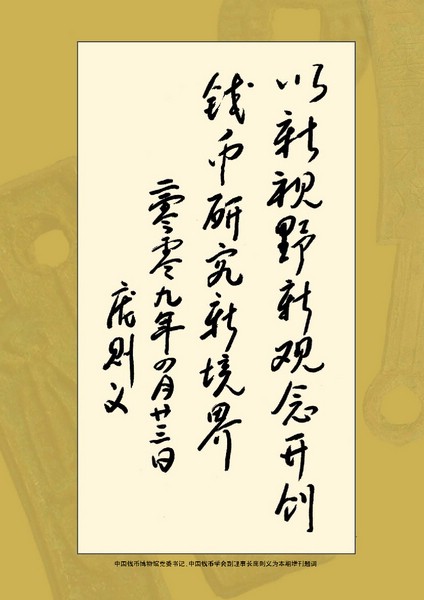 以新视野新观念开创
钱币研究新境界
二零零九年四月廿三日
庞则义
中国钱币博物馆党委书记、中国钱币学会副理事长庞则义为本期增刊题词